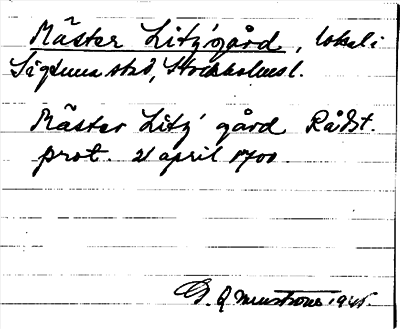 Mäster Litz' gård, lokal i
Sigtuna stad, Stockholms l.
Mäster Litz' gård Rådst.
prot. 21 april 1700.